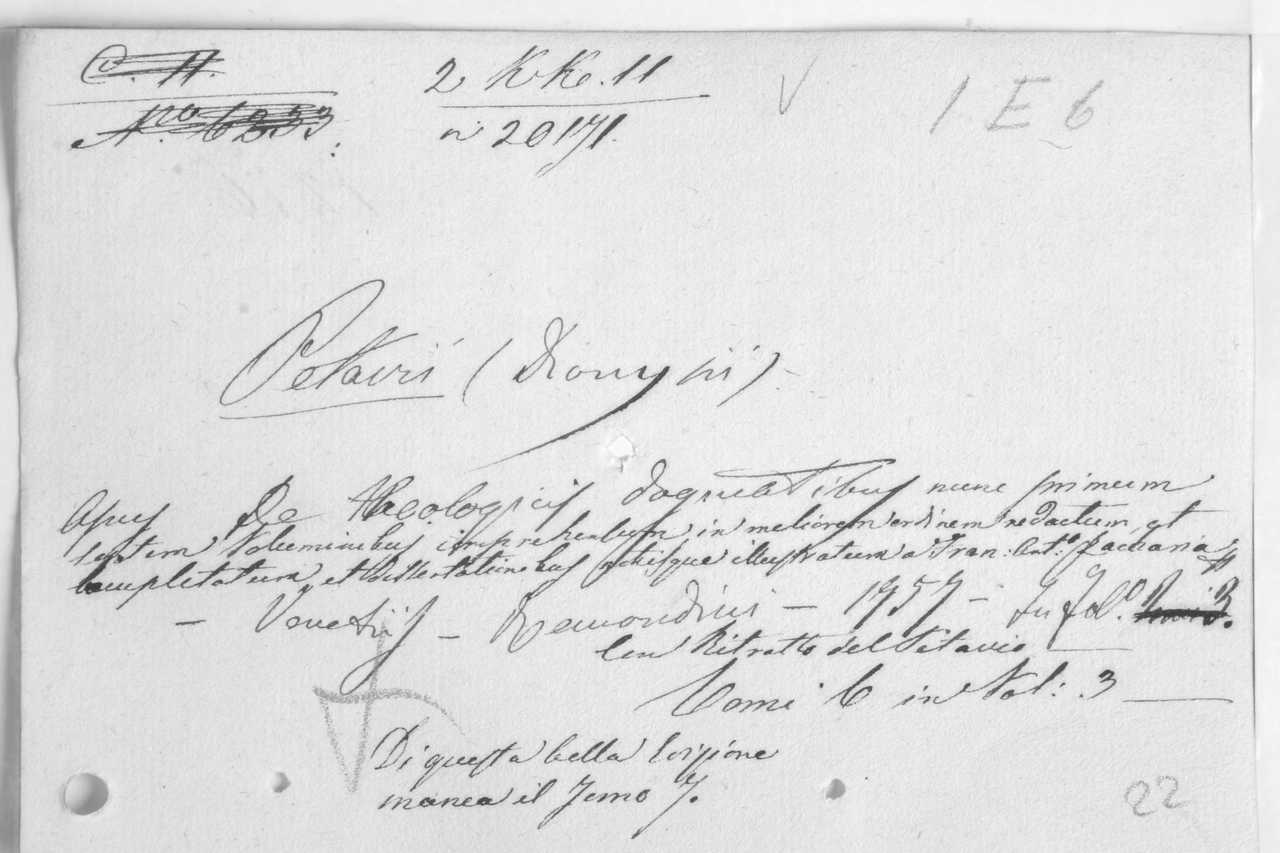 C. 11.
2 KK. 11
1 E 6
Nro. 6233.
n 20171.
Petavii (Dionysii)
Opus De Theologicis dogmatibus nunc primum
septem Voluminibus comprehensum, in meliorem ordinem redactum, et
locupletatum, et dissertationibus, notisque illustratum a Fran: Anto. Zacharia
– Venetiis – Remondini – 1757 – In Fol. Tomi 3.
Con Ritratto del Petavio
Tomi 6 in Vol: 3
Di questa bella Edizione
manca il Tomo 7.
22